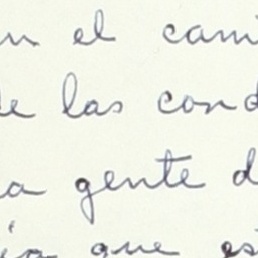 en el cami
de las cond
la gente d
ia que es